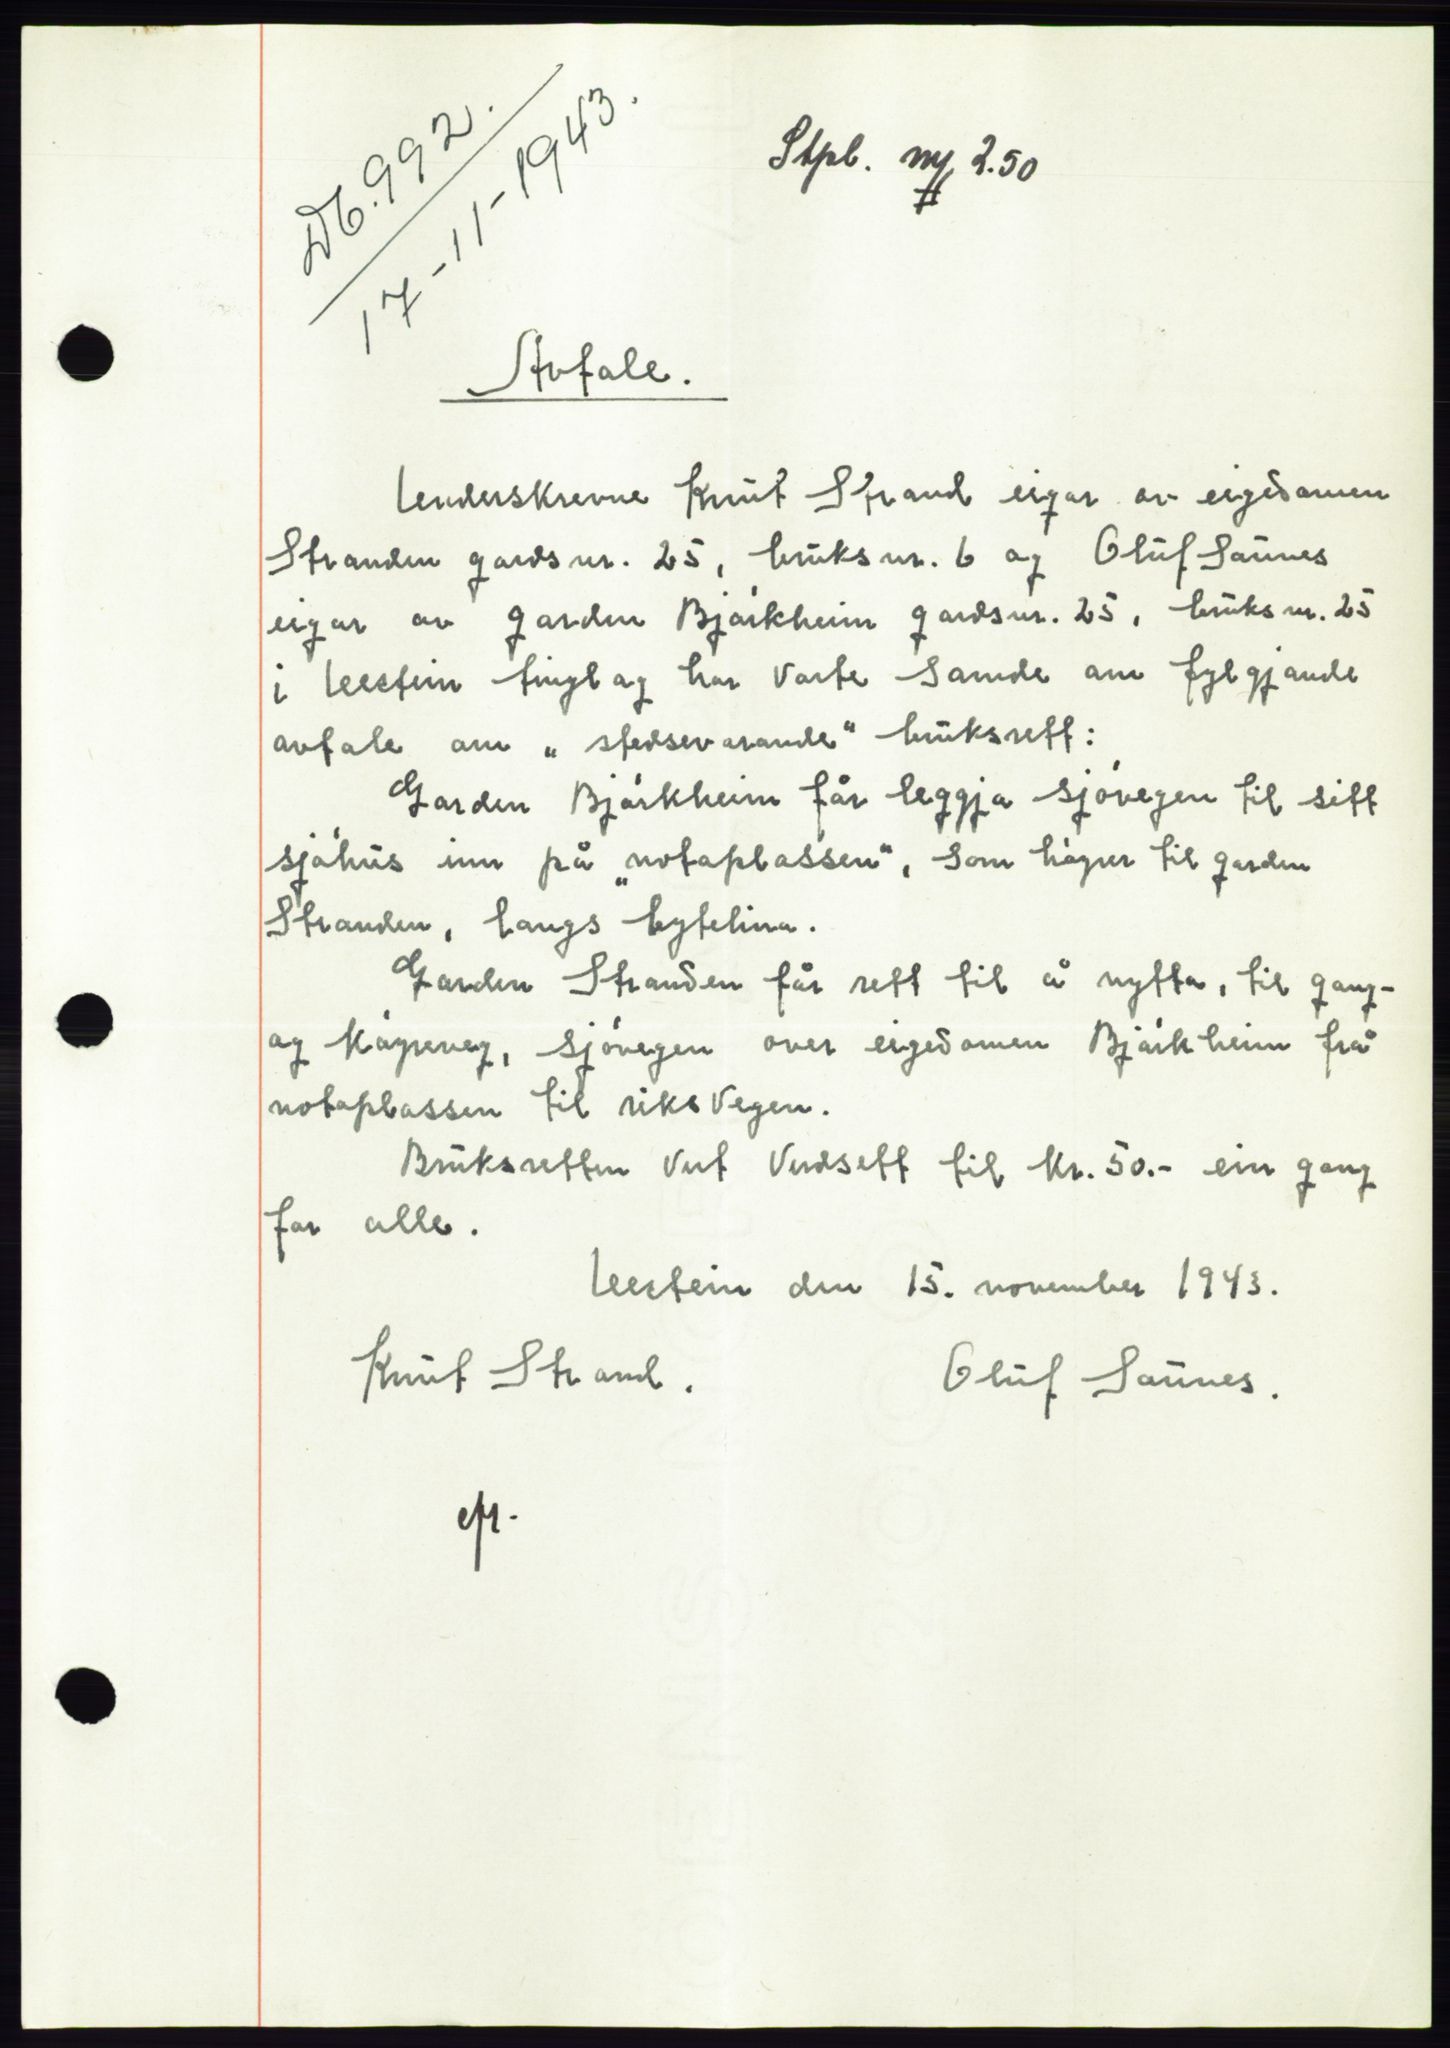 Db. 992.
17-11-1943.
Stpl. ny 2.50
Avtale.
Underskrevne Knut Strand eigar av eigedomen
Stranden gardsnr. 25, bruksnr. 6 og Oluf Saunes
eigar av garden Bjørkheim gardsnr. 25, bruksnr. 25
i Ulstein tinglag har vorte samde om fylgjande
avtale om „stedsevarande" bruksrett:
Garden Bjørkheim får leggja sjøvegen til sitt
sjøhus inn på „notaplassen", som høyrer til garden
Stranden, langs bytelina.
Garden Stranden får rett til å nytta, til gang-
og køyreveg, sjøvegen over eigedomen Bjørkheim frå
notaplassen til riksvegen.
Bruksretten vert verdsett til kr. 50.- ein gang
for alle.
Ulstein den 15. november 1943.
Knut Strand. Oluf Saunes.